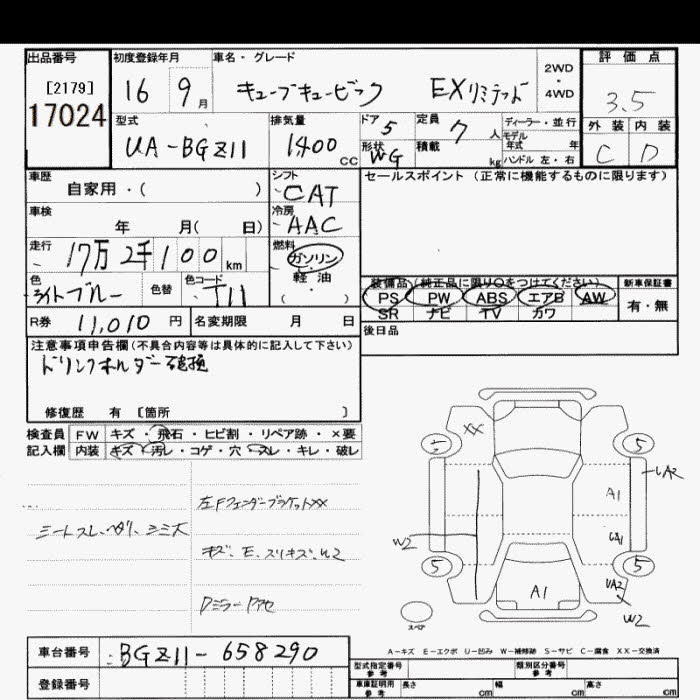 出品番号 初度登録年月 車名・グレード 2WD・4WD 評価点
[2179] 16 9月 キューブキュービック EXリミテッド 3.5
17024
型式 排気量 ドア 5 定員 7人 ディーラー・並行
モデル年式 年
外装 内装
UA-BGZ11 1400cc 形状 WG 積載 kg ハンドル 左・右
C D
車歴 シフト セールスポイント (正常に機能するものに限ります)
自家用・( ) CAT
車検 冷房
年 月( 日) AAC
走行 燃料
17万2千100km ガソリン
軽油
( )
色 色替 色コード
ライトブルー T11
装備品 (純正品に限り○をつけてください) 新車保証書
PS PW ABS エアB AW 有・無
SR ナビ TV カワ
R券 11,010円 名変期限 月 日
後日品
注意事項申告欄(不具合内容等は具体的に記入して下さい)
ドリンクホルダー破損
修復歴 有 [箇所 ]
検査員 FW キズ・飛石・ヒビ割・リペア跡・×要
記入欄 内装 キズ・汚レ・コゲ・穴・スレ・キレ・破レ
左Fフェンダーブラケットxx
シートスレ、ヘタリ、シミ大
キズ、E、スリキズ、W2
XX
5
UA2
A1
W2
5 5
A1
UA2
W2
スペア
A-キズ E-エクボ U-凹み W-補修跡 S-サビ C-腐食 XX-交換済
車台番号 BGZ11-658290
登録番号
型式指定番号 参考 類別区分番号 参考
車庫証明用 参考 長さ cm 幅 cm 高さ cm